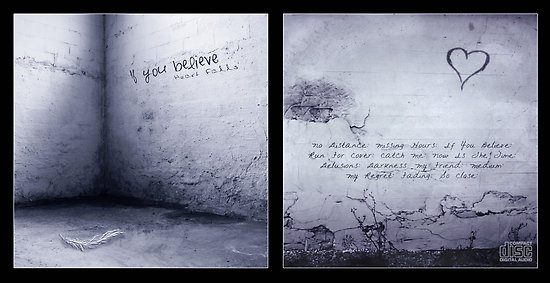 If you believe
Heart Falls
No Distance Missing Hours If You Believe
Run For Cover Catch me Now Is The Time
Delusions Darkness my Friend medium
my Regret Fading So Close
COMPACT
disc
DIGITAL AUDIO